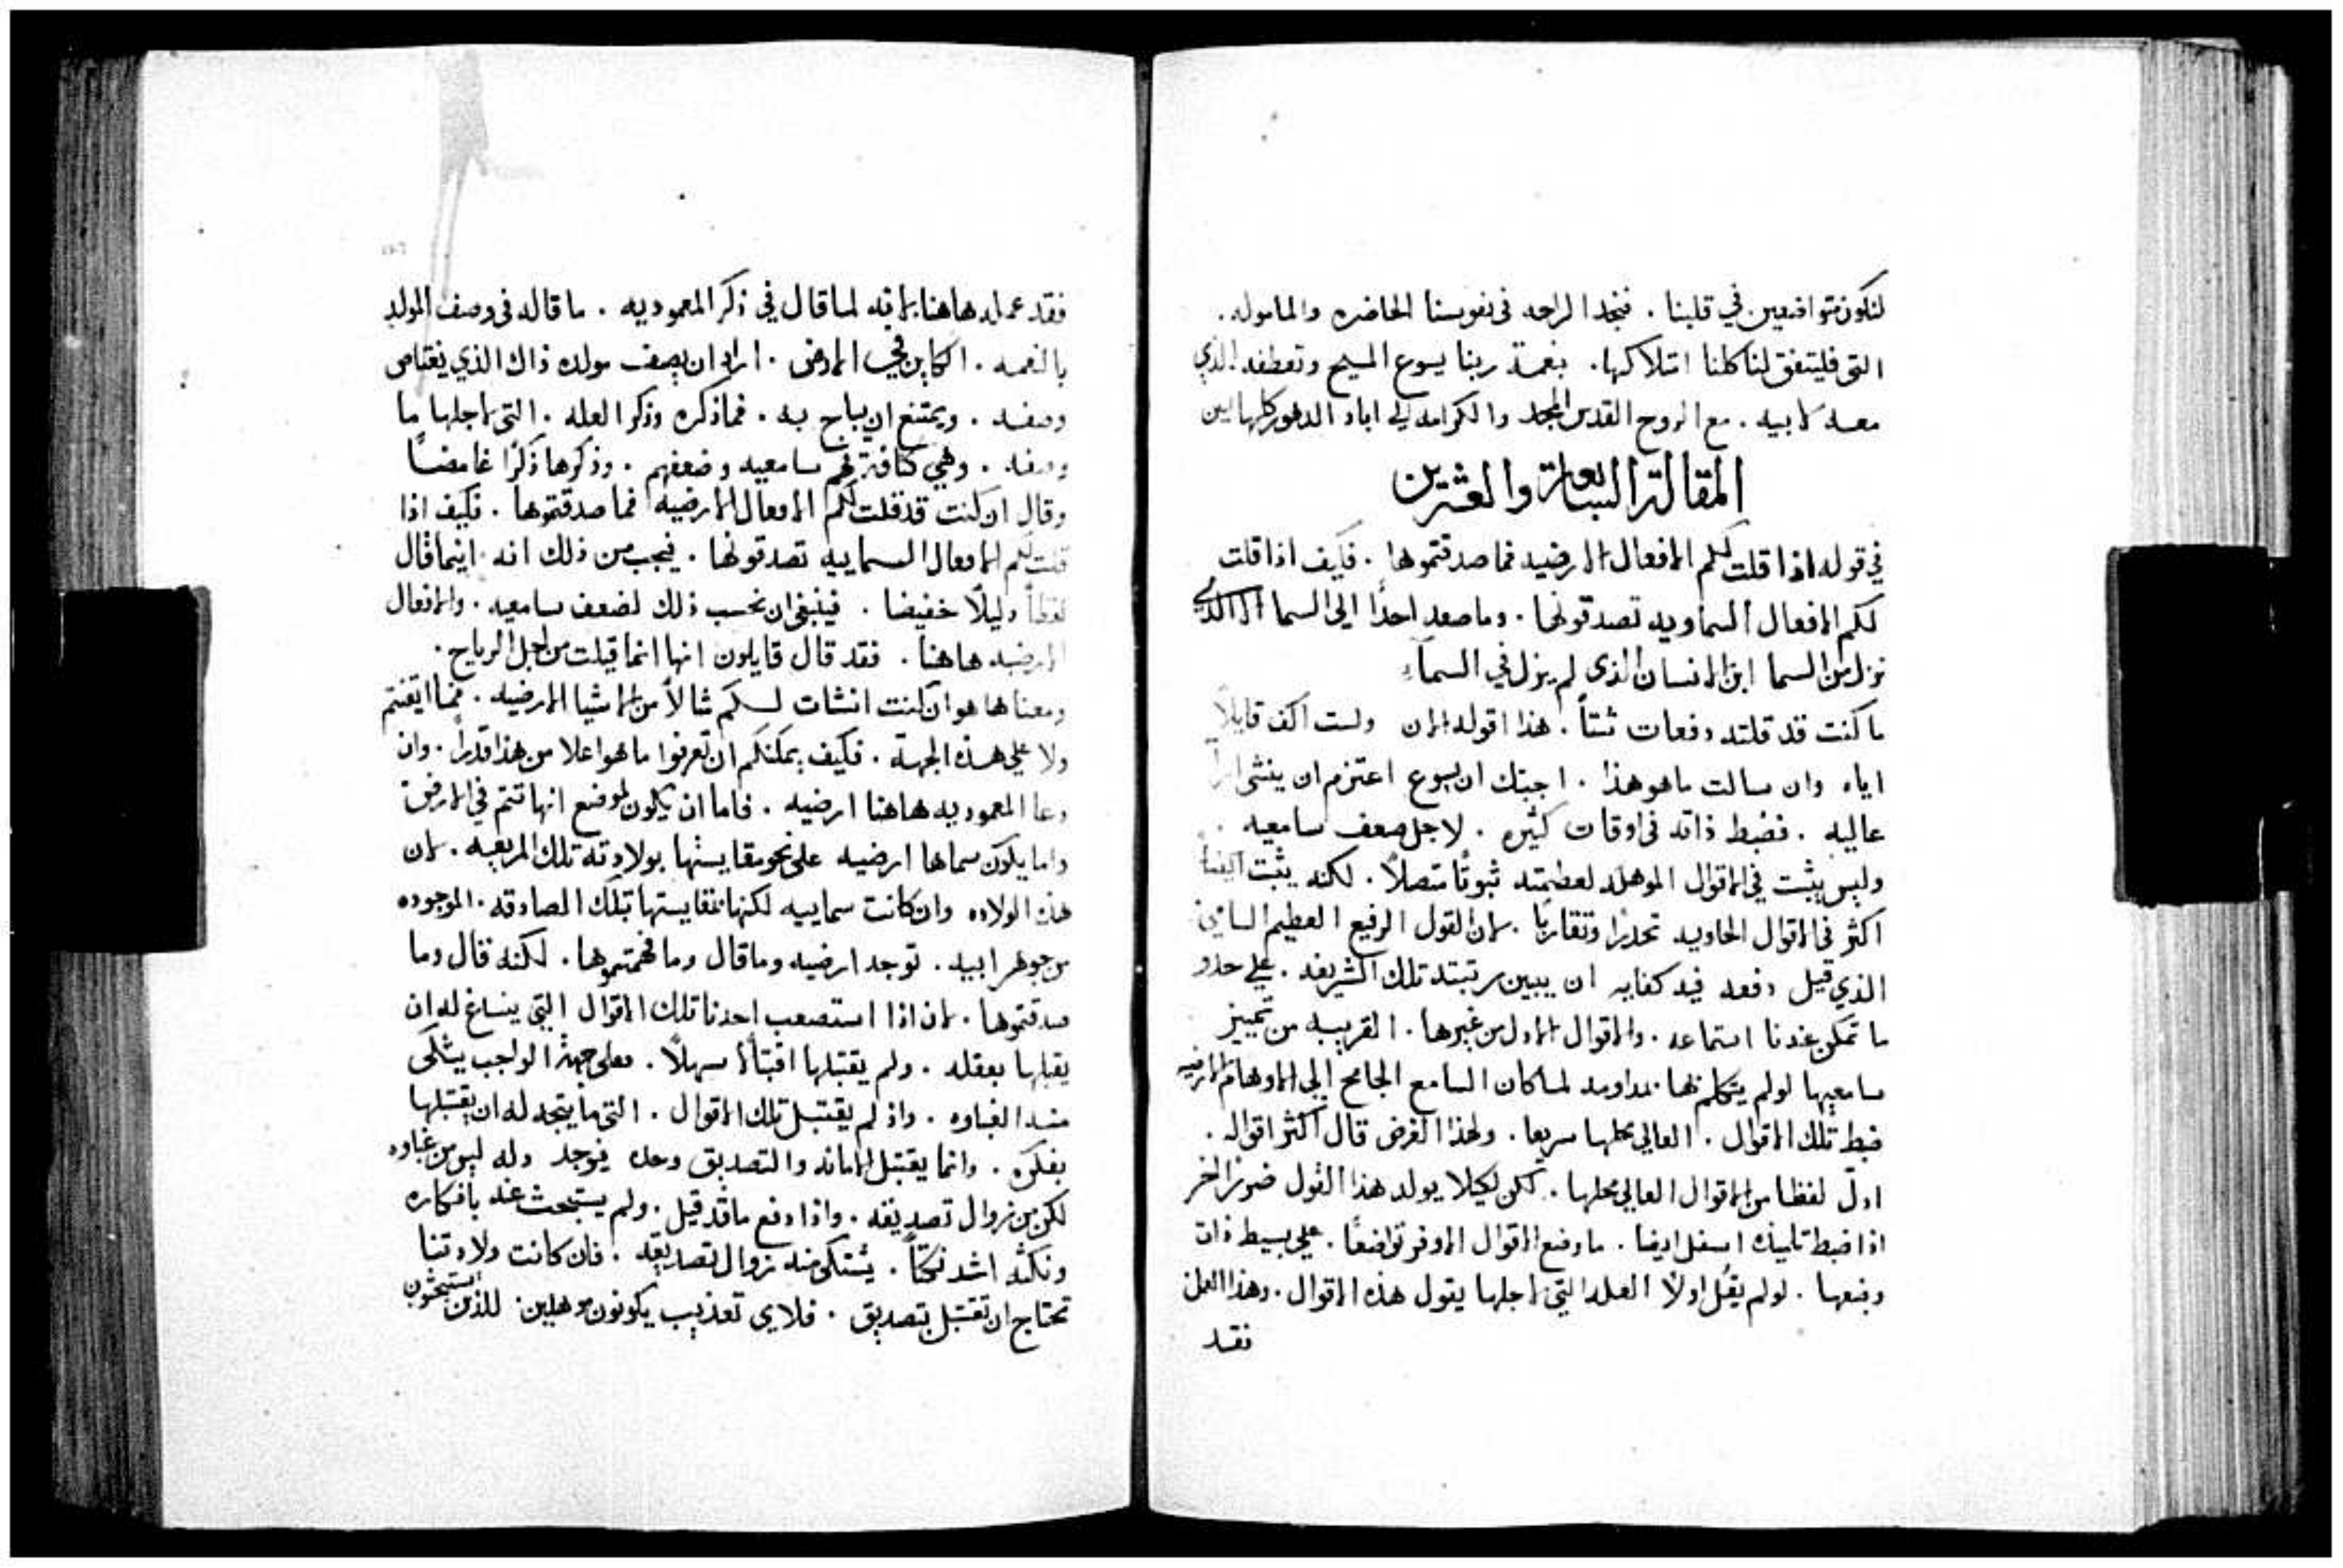 لنكون متواضعين في قلبنا . فنجد الراحه في نفوسنا الحاضره والماموله .
التي فليتفق لنا كلنا امتلاكها . بنعمة ربنا يسوع المسيح وتعطفه الذي
معه لابيه . مع الروح القدس المجد والكرامه الي اباد الدهور كلها امين
المقالة السابعة والعشرين
في قوله اذا قلت لكم الافعال الارضيه فما صدقتموها . فكيف اذا قلت
لكم الافعال السماويه تصدقونها . وما صعد احدًا الي السما الا الذي
نزل من السما ابن الانسان الذي لم يزل في السماء
ما كنت قد قلته دفعات شتاً . هذا اقوله الان ولست اكف قايلاً
اياه وان سالت ما هو هذا . اجبتك ان يسوع اعتزم ان ينشي
عاليه . فضبط ذاته في اوقات كثيره . لاجل ضعف سامعيه .
وليس يثبت في الاقوال الموهله لعظمته ثبوتًا متصلاً . لكنه يثبت ايضا
اكثر في الاقوال الحاويه تحدرا وتقاربًا . لان القول الرفيع العظيم السامي
الذي قيل دفعه فيه كفايه ان يبين مرتبته تلك الشريفه . علي حذو
ما تمكن عندنا استماعه . والاقوال الادل من غيرها . القريبه من تمييز
سامعيها لو لم يتكلم بها بمداومه لما كان السامع الجامح الي الاوهام الارضيه
ضبط تلك الاقوال . العالي محلها سريعا . ولهذا الغرض قال اكثر اقواله .
ادل لفظا من الاقوال العالي محلها . لكن لكيلا يولد هذا القول ضررا اخر
اذا ضبط تلميذه اسفل ايضا . ما وضع الاقوال الاوفر تواضعًا . علي بسيط ذات
وضعها . لو لم يقل اولاً العله التي لاجلها يقول هذه الاقوال . وهذا العمل
فقد
فقد عمله هاهنا لانه لما قال في ذكر المعموديه . ما قاله في وصف المولد
بالنعمه . الكاين في الارض . اراد ان يصف مولده ذاك الذي يعتاص
وصفه . ويمتنع ان يباح به . فما ذكره وذكر العله . التي لاجلها ما
وصفه . وهي كثافة فهم سامعيه وضعفهم . وذكرها ذكرًا غامضًا
وقال ان كنت قد قلت لكم الافعال الارضيه فما صدقتموها . فكيف اذا
قلت لكم الافعال السماييه تصدقونها . فيجب من ذلك انه اينما قال
لفظاً دليلاً خفيضا . فينبغي ان نحسب ذلك لضعف سامعيه . والافعال
الارضيه هاهنا . فقد قال قايلون انها انما قيلت من اجل الرياح .
ومعناها هو ان كنت انشات لكم مثالاً من الاشيا الارضيه . فما ايقنتم
ولا علي هذه الجهة . فكيف يمكنكم ان تعرفوا ما هو اعلا من هذا قدراً . وان
دعا المعموديه هاهنا ارضيه . فاما ان يكون لموضع انها تتم في الارض
واما يكون سماها ارضيه علي نحو مقايستها بولادته تلك المريعه . لان
هذه الولاده وان كانت سماييه لكنها بمقايستها بتلك الصادقه . الموجوده
من جوهر ابيه . توجد ارضيه وما قال وما فهمتموها . لكنه قال وما
صدقتموها . لان اذا استصعب احدنا تلك الاقوال التي ينساغ له ان
يقبلها بعقله . ولم يقتبلها اقتبالاً سهلاً . فعلي جهة الواجب يشتكي
منه الغباوه . واذ لم يقتبل تلك الاقوال . التي ما يتجه له ان يقتبلها
بفكره . وانما يقتبل الامانه والتصديق وحده فيوجد وله ليس من غباوه
لكن من زوال تصديقه . واذا دفع ما قد قيل . ولم يستبحث عنه بافكاره
ونكثه اشد نكثاً . يشتكي منه زوال تصديقه . فان كانت ولادتنا
تحتاج ان تقتبل بتصديق . فلاي تعذيب يكونون موهلين الذين يستبحثون